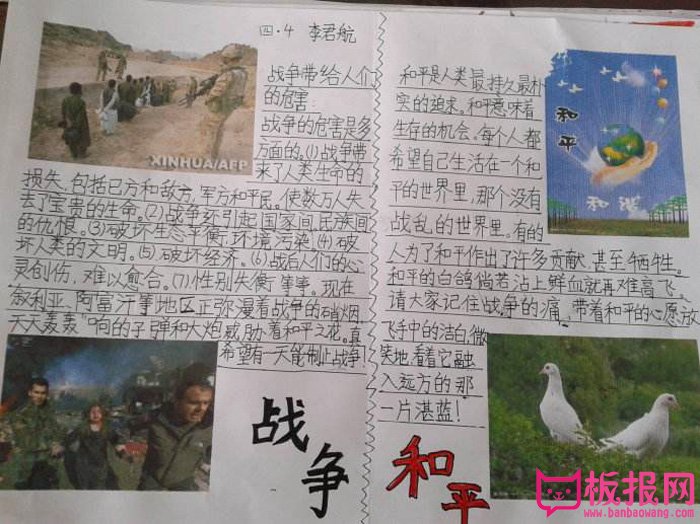 四·4 李君航
战争带给人们
的危害:
战争的危害是多
方面的。(1)战争带
来了人类生命的
损失,包括已方和敌方,军方和平民。使数万人失
去了宝贵的生命。(2)战争环引起国家间,民族间
的仇恨。(3)破坏生态平衡,环境污染。(4)破
坏人类的文明。(5)破坏经济。(6)战后人们的心
灵创伤,难以愈合。(7)性别失衡等事。现在
叙利亚,阿富汗等地区正弥漫着战争的硝烟
天天轰轰”响的子弹和大炮威胁着和平之花。真
希望有一天能制止战争!
XINHUA/AFP
战争
和平是人类最持久最朴
实的追求。和平意味着
生存的机会,每个人都
希望自己生活在一个和
平的世界里,那个没有
战乱的世界里。有的
人为了和平作出了许多贡献,甚至牺牲。
和平的白鸽倘若沾上鲜血就再难高飞。
请大家记住战争的痛,带着和平的心愿放
飞手中的洁白,微
笑地看着它融
入远方的那
一片湛蓝!
和平
和谐
和平
板报网
www.banbaowang.com